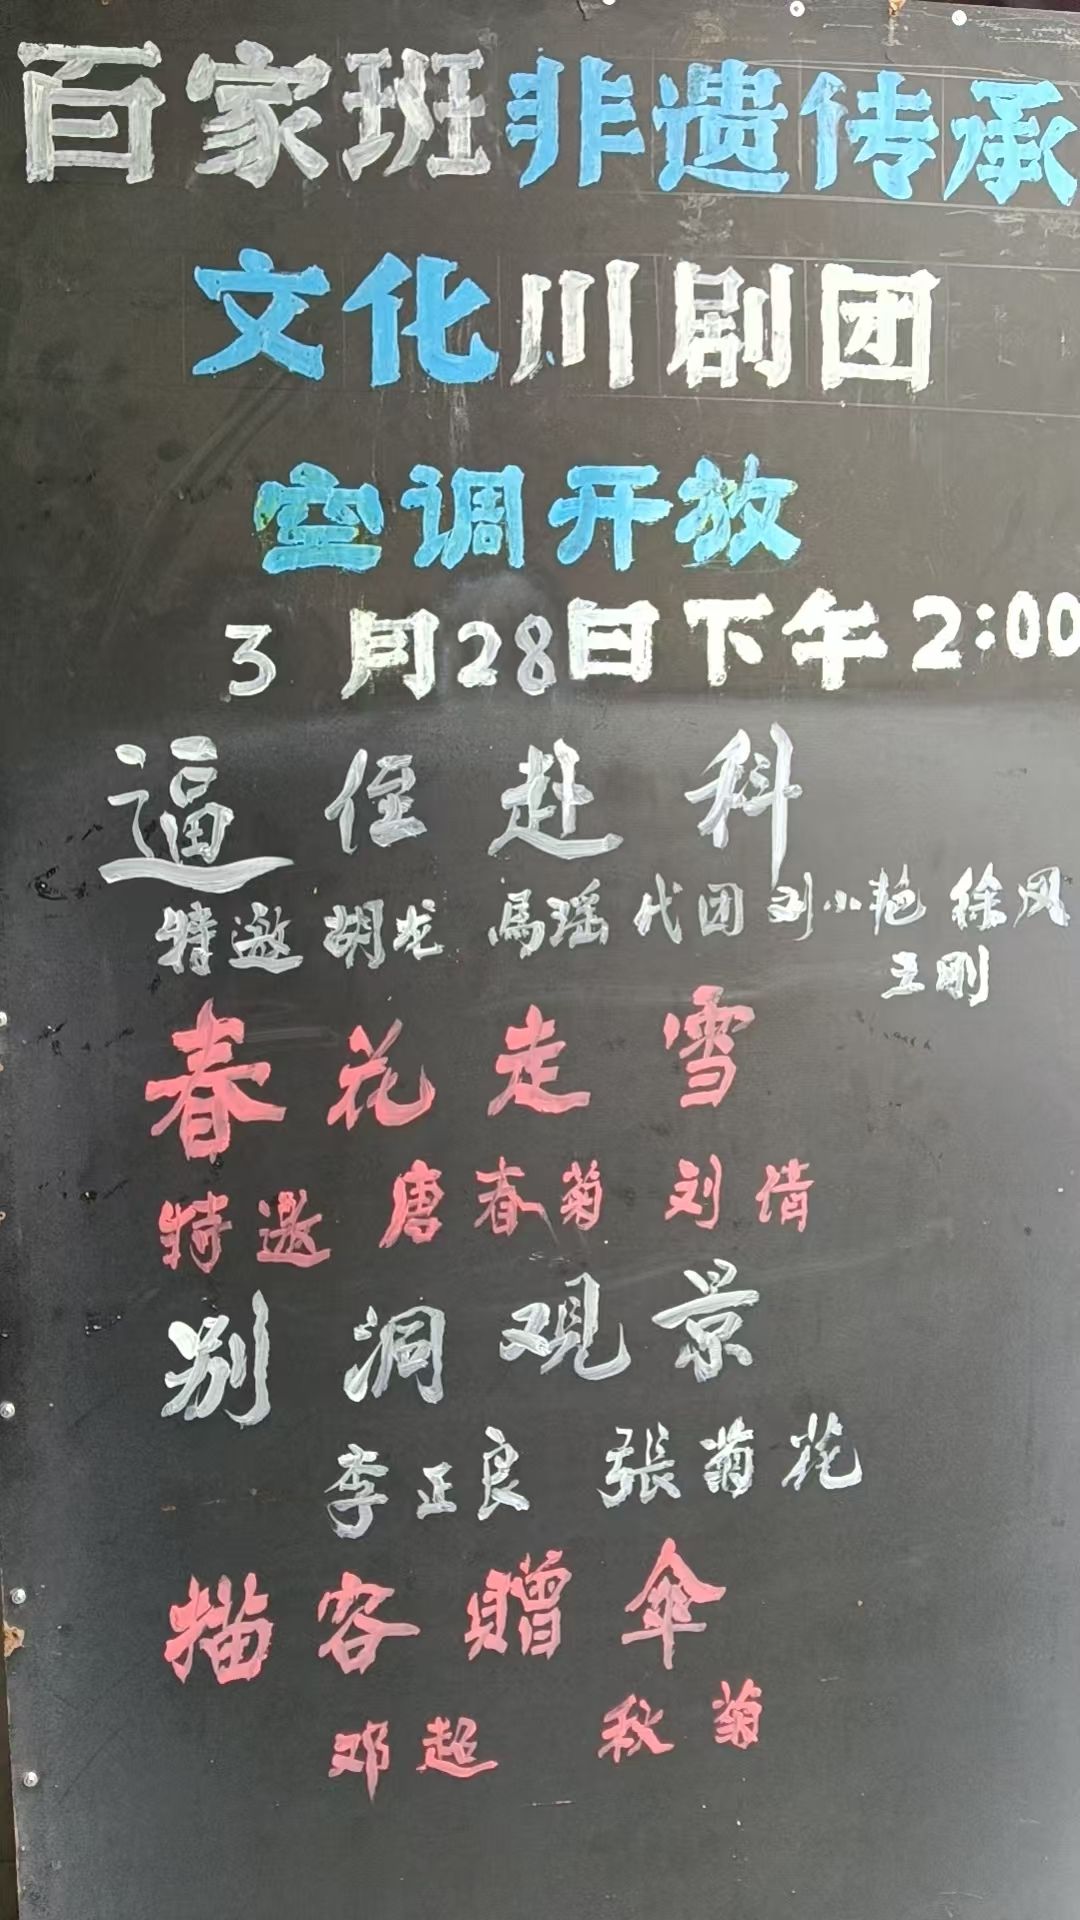 百家班非遗传承
文化川剧团
空调开放
3月28日下午2:00
逼侄赴科
特邀 胡龙 馬瑶 代团 刘小艳 徐凤
王刚
春花走雪
特邀 唐春菊 刘倩
别洞观景
李正良 張菊花
描容赠伞
邓超 秋菊